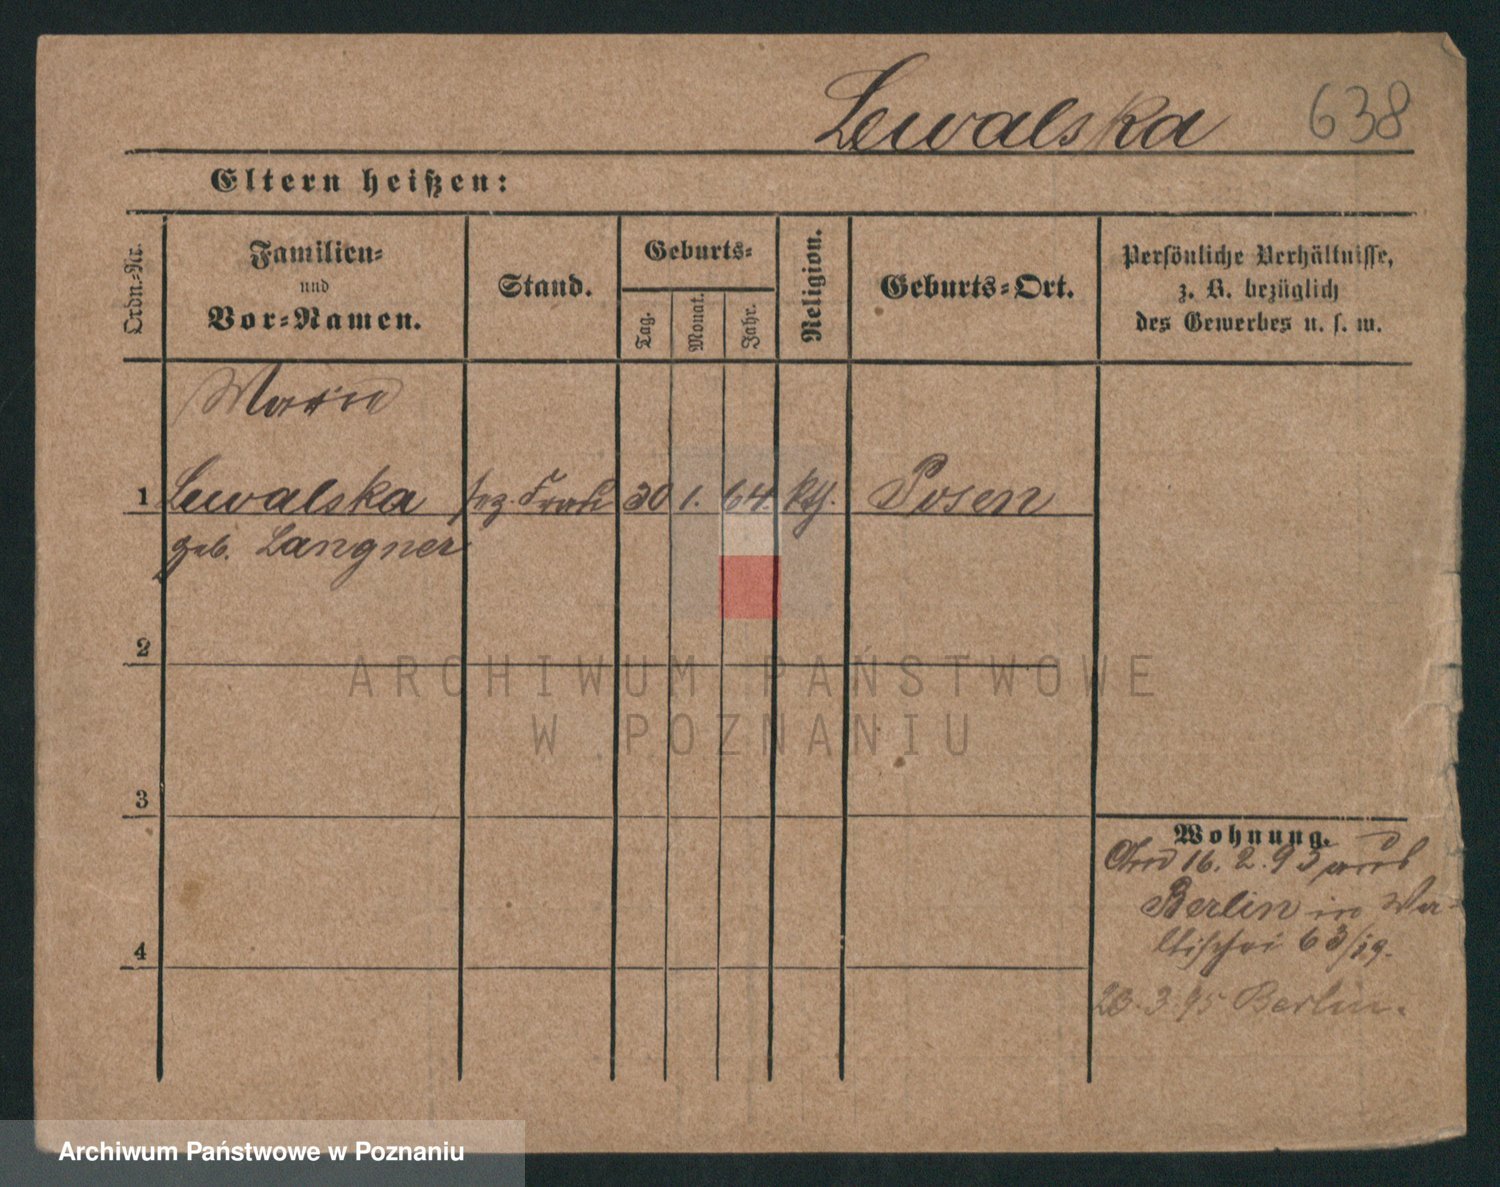 Lewalska 638
Eltern heißen:
Ordn.-Nr.
Familien-
und
Vor-Namen.
Stand.
Geburts-
Tag.
Monat.
Jahr.
Religion.
Geburts-Ort.
Persönliche Verhältnisse,
z. B. bezüglich
des Gewerbes u. s. w.
1 Lewalska Frau 30 1. 64. kth. Posen
geb. Langner
2
3
4
Wohnung.
16. 2. 93 aus
Berlin in Wa-
llischei 63/
23. 3. 95 Berlin.
ARCHIWUM PAŃSTWOWE
W POZNANIU
Archiwum Państwowe w Poznaniu